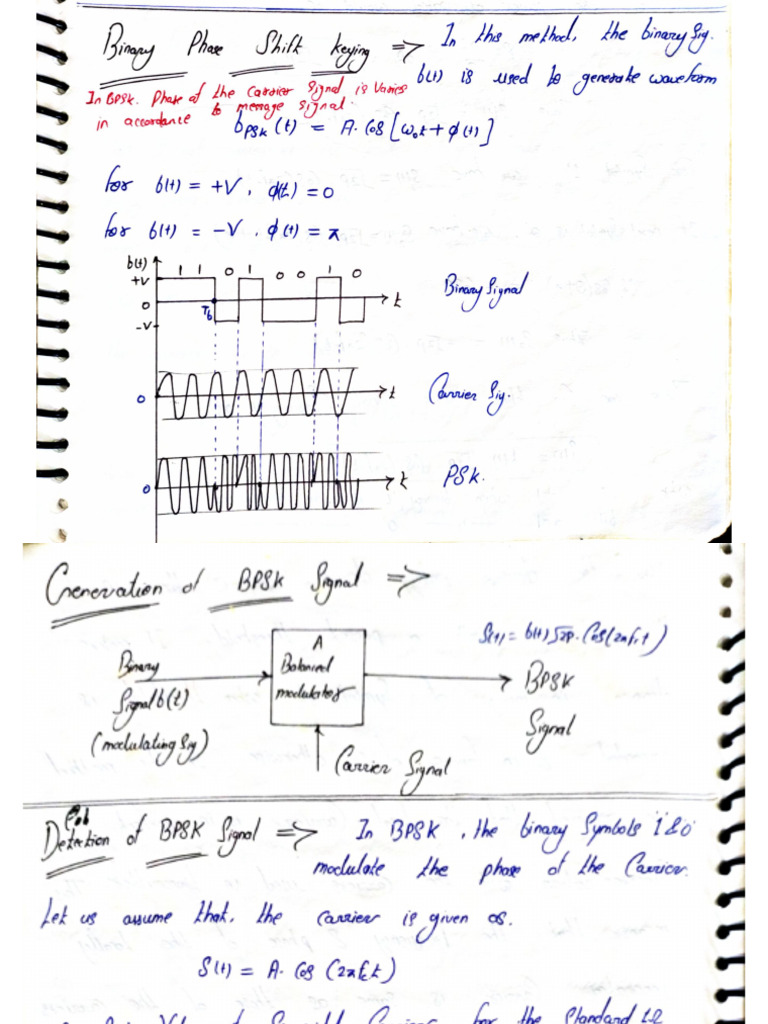 Binary Phase Shift keying => In this method, the binary Sig.
b(t) is used to generate waveform
In BPSK. Phase of the Carrier Signal is Varies
in accordance to message signal.
bPSK(t) = A. Cos [ω₀t + φ(t)]
for b(t) = +V, φ(t) = 0
for b(t) = -V. φ(t) = π
b(t) 1 1 0 1 0 0 1 0
+V
0 Tb t
-V
Binary Signal
0 t Carrier Sig.
0 t PSK.
Generation of BPSK Signal =>
S(t) = b(t) √2P. Cos(2πfct)
Binary
Signal b(t)
(modulating Sig)
A
Balanced
modulator
BPSK
Signal
Carrier Signal
Detection of BPSK Signal => In BPSK, the binary Symbols '1 & 0'
modulate the phase of the Carrier.
Let us assume that, the carrier is given as.
S(t) = A. Cos (2πfct)
for the Standard